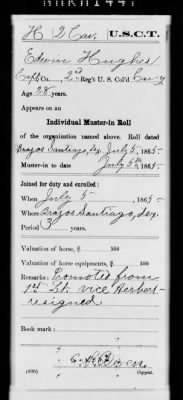 H 2 Cav. U.S.C.T.
Edwin Hughes
Capt, Co. , 2d Reg't U. S. Col'd Cav'y
Age 28 years.
Appears on an
Individual Muster-in Roll
of the organization named above. Roll dated
Brazos Santiago, Tex. July 5, 1865.
Muster-in to date July 5th, 1865.
Joined for duty and enrolled:
When July 5, 1865.
Where Brazos Santiago, Tex.
Period 3 years.
Valuation of horse, $ 100
Valuation of horse equipments, $ 100
Remarks: Promoted from
1st Lt. vice Herbert
resigned.
Book mark:
(330) Copyist.